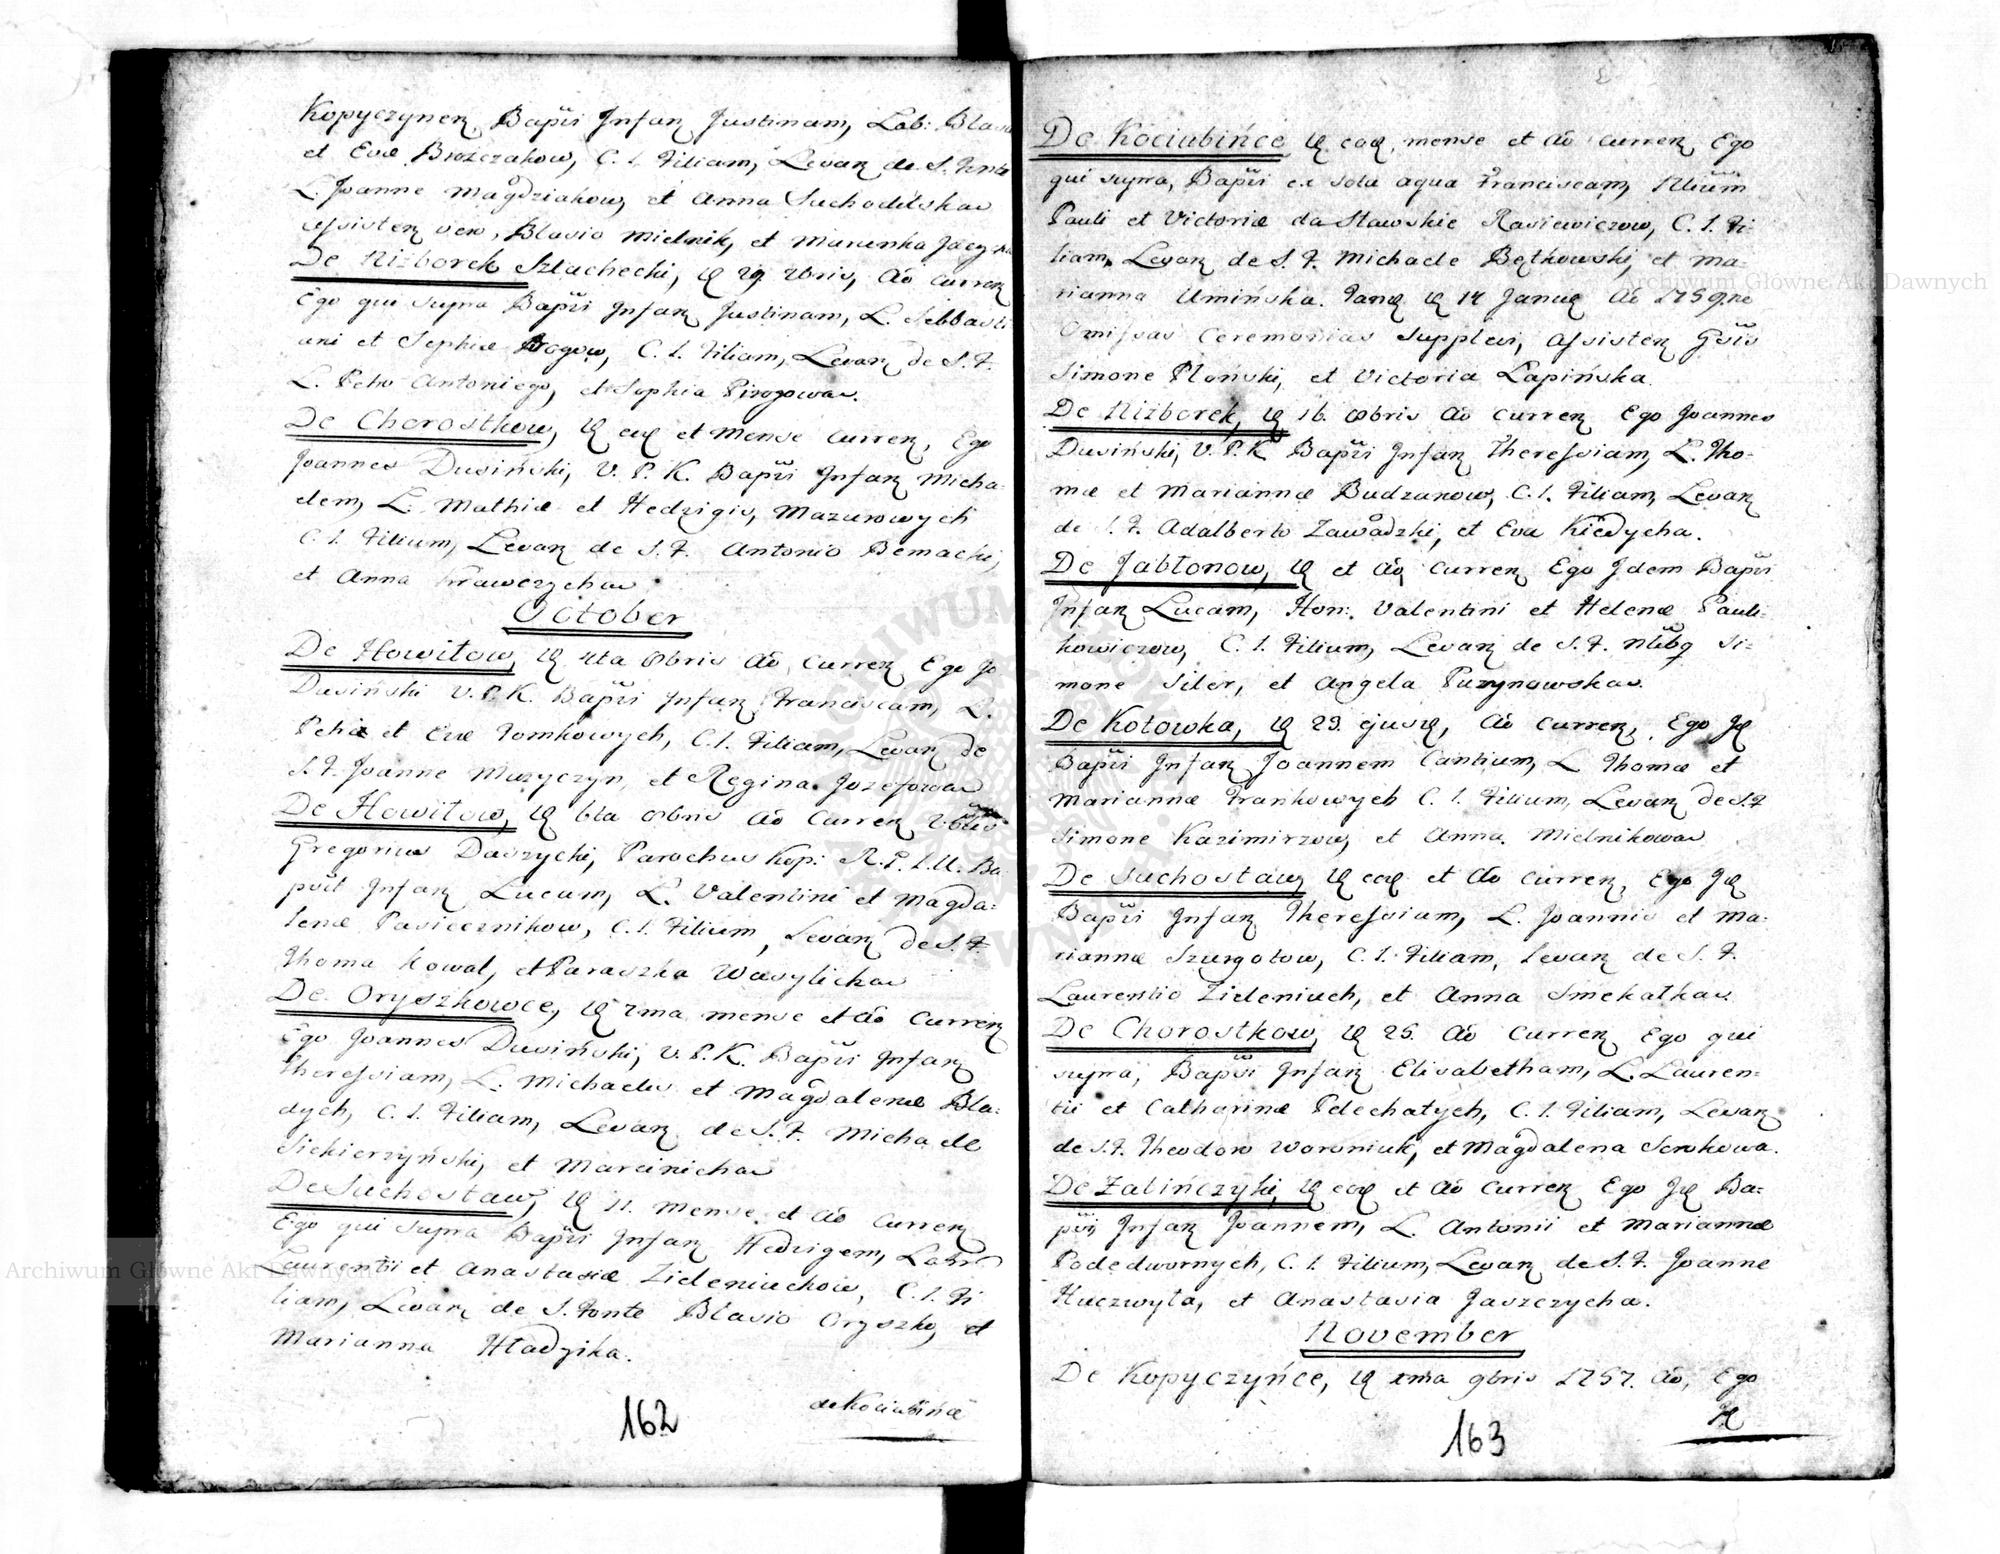 Kopyczynen, Bapŭi Infan Justinam, Lab: Blasii
et Evæ Brozczakow, C. L. Filiam, Levan de S. Fonte
L. Joanne Magdziakow, et Anna Suchodilska
assisten vero, Blasio Mielnik, et Marunka
De Niżborek Szlachecki, 29 7bris, Aõ curren
Ego qui supra Bapŭi Infan Justinam, L. Sebbasti
ani et Sophiæ, C. L. Filiam, Levan de S. F.
L. Petro Antoniego, et Sophia Pirogowa.
De Chorostkow, eod et Mense curren, Ego
Joannes Dusiński, V. P. K. Bapŭi Infan Micha=
elem, L. Mathiæ et Hedzigis, Mazurowych
C. L. Filium, Levan de S. F. Antonio Bemacki,
et Anna Krawczycha
October
De Howiłow, 4ta 8bris Aõ, curren Ego Jo
Dusiński V. P. K. Bapŭi Infan Franciscam, L.
Petri et Evæ Tomkowych, C. L. Filiam, Levan de
S. F. Joanne Muzyczyn, et Regina Jozefowa
De Howiłow, 6ta 8bris Aõ curren
Gregorius Daszycki, Parochus Kop: R. G. L. U. Ba
pŭit Infan Lucam, L. Valentini et Magda=
lenæ Pasiecznikow, C. L. Filium, Levan de S. F.
Thoma Kowal, et Paraszka Wasylicha
De Oryszkowce, 7ma mense et Aõ curren
Ego Joannes Dusiński, V. P. K. Bapŭi Infan
Theressiam, L. Michaelis et Magdalenæ Bla=
dych, C. L. Filiam, Levan de S. F. Michaele
Siekierzyński, et Marcinicha
De Suchostaw, 11. Mense et Aõ curren
Ego qui supra Bapŭi Infan Hedzigem, Labr
Laurentii et Anastasiæ Zieleniuchow, C. L. Fi
liam, Levan de S. Fonte Blasio Oryszko, et
Marianna Hładzika.
de Kociubińcæ
162
De Kociubińce eod, mense et Aõ curren, Ego
qui supra, Bapŭi ex sola aqua Franciscam, Nlium
Pauli et Victoriæ da Stawskie Rasiewiczow, C. L. Fi=
liam, Levan de S. F. Michaele Bętkowski, et Ma=
rianna Umińska. 14 Janu Aõ 1759ne
Omissas Ceremonias supplevi, assisten
Simone Płoński, et Victoria Łapińska.
De Niżborek, 16. 8bris Aõ curren Ego Joannes
Dusiński, V. P. K Bapŭi Infan Theressiam, L. Tho=
mæ et Mariannæ Budzanow, C. L. Filiam, Levan
de S. F. Adalberto Zawadzki, et Eva Kiedycha.
De Jabłonow, et Aõ, curren Ego Idem Bapŭi
Infan Lucam, Hon: Valentini et Helenæ Pauli=
kowiczow, C. L. Filium, Levan de S. F. Si=
mone Siler, et Angela Puzynowska.
De Kotowka, 23. ejus, Aõ curren, Ego
Bapŭi Infan Joannem Cantium, L. Thomæ et
Mariannæ Frankowych C. L. Filium, Levan de S. F
Simone Kazimirzow, et Anna Mielnikowa
De Suchostaw, eod et Aõ curren, Ego
Bapŭi Infan Theressiam, L. Joannis et Ma=
riannæ Szurgotow, C. L. Filiam, Levan de S. F.
Laurentio Zieleniuch, et Anna Smekałka.
De Chorostkow, 25. Aõ curren Ego qui
supra, Bapŭi Infan Elisabetham, L. Lauren=
tii et Catharinæ Pelechatych, C. L. Filiam, Levan
de S. F. Theodoro Woroniuk, et Magdalena Serokowa.
De Zalińczyki, eod et Aõ curren Ego Ba=
pŭi, Infan Joannem, L. Antonii et Mariannæ
Podedwornych, C. L. Filium, Levan de S. F. Joanne
Huczwyta, et Anastasia Jaszczycha.
November
De Kopyczyńce, 1ma 9bris 1757. Aõ, Ego
163
Archiwum Główne Akt Dawnych
Archiwum Główne Akt Dawnych